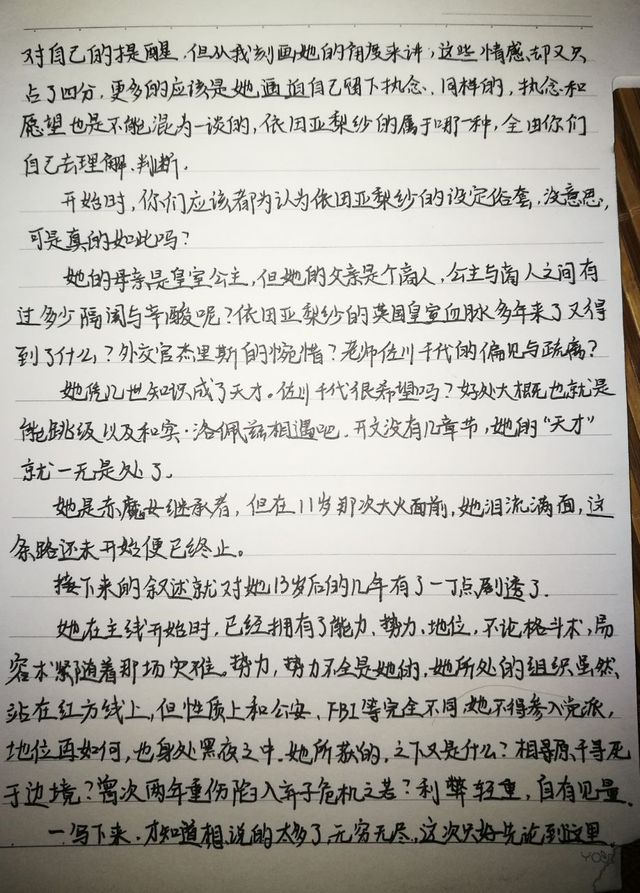 对自己的提醒,但从我刻画她的角度来讲,这些情感却又只
占了四分,更多的应该是她逼迫自己留下执念、同样的,执念和
愿望也是不能混为一谈的,依田亚梨纱的属于哪一种,全由你们
自己去理解、判断.
开始时,你们应该都为认为依田亚梨纱的设定俗套,没意思,
可是真的如此吗?
她的母亲是皇室公主,但她的父亲是个商人,公主与商人之间有
过多少隔阂与辛酸呢?依田亚梨纱的英国皇室血脉多年来了又得
到了什么?外交官杰里斯的惋惜?老师佐川千代的偏见与疏离?
她凭几世知识成了天才。佐川千代很希望吗?好处大概也就是
能跳级以及和实·洛佩兹相遇吧.开文没有几章节,她的“天才”
就一无是处了。
她是赤魔女继承者,但在11岁那次大火面前,她泪流满面,这
条路还未开始便已终止。
接下来的叙述就对她13岁后的几年有了一丁点剧透了.
她在主线开始时,已经拥有了能力、势力、地位,不论格斗术,易
容术紧随着那场灾难。势力,势力不全是她的,她所处的组织虽然
站在红方线上,但性质上和公安、FBI等完全不同,她不得参入党派,
地位再如何,也身处黑夜之中.她所救的,之下又是什么?相寻原千寻死
于边境?
次两年重伤陷入弃子危机之苦?利弊轻重,自有见量.
一写下来.才知道相说的太多了,无穷无尽,这次只好先论到这里